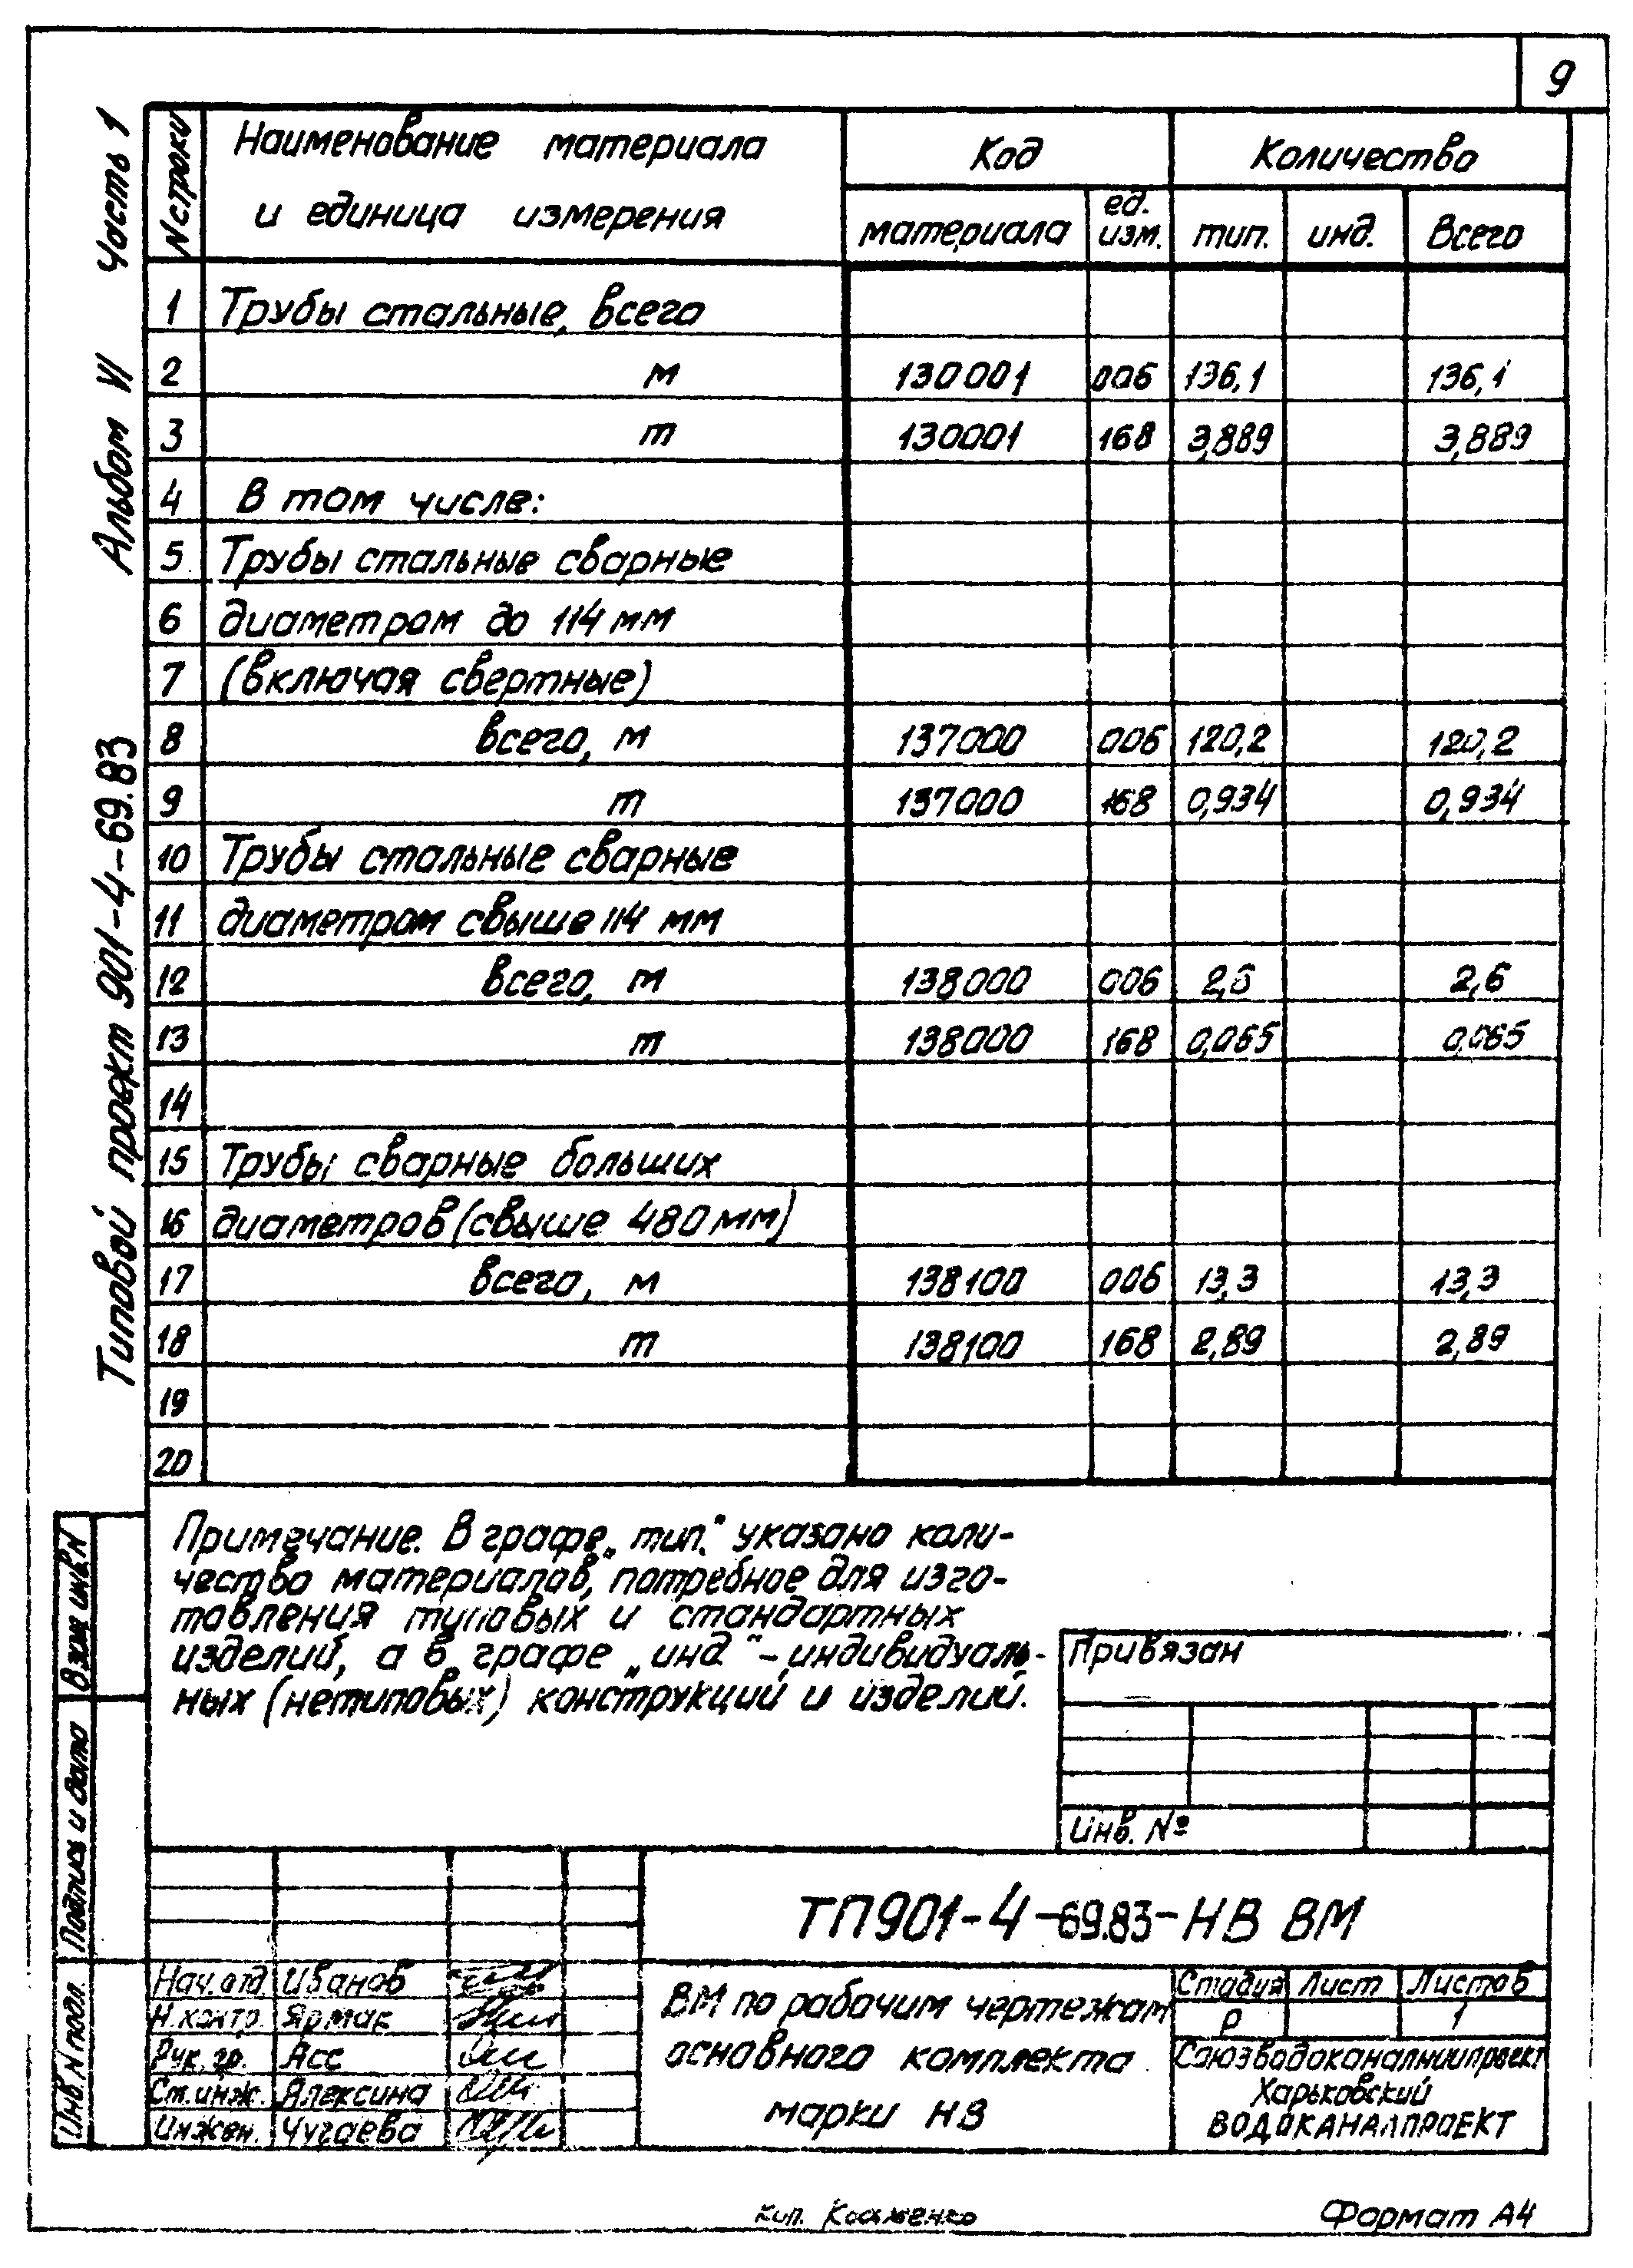 9
Типовой проект 901-4-69.83 Альбом VI Часть 1
N строки Наименование материала и единица измерения Код Количество
материала ед. изм. тип. инд. Всего
1 Трубы стальные, всего
2 м 130001 006 136,1 136,1
3 т 130001 168 3,889 3,889
4 В том числе:
5 Трубы стальные сварные
6 диаметром до 114 мм
7 (включая свертные)
8 всего, м 137000 006 120,2 120,2
9 т 137000 168 0,934 0,934
10 Трубы стальные сварные
11 диаметром свыше 114 мм
12 всего, м 138000 006 2,6 2,6
13 т 138000 168 0,065 0,065
14
15 Трубы сварные больших
16 диаметров (свыше 480 мм)
17 всего, м 138100 006 13,3 13,3
18 т 138100 168 2,89 2,89
19
20
Примечание. В графе „тип." указано коли-
чество материалов, потребное для изго-
товления типовых и стандартных
изделий, а в графе „инд" - индивидуаль-
ных (нетиповых) конструкций и изделий.
Привязан
Инв. №
Взам. инв. N
Подпись и дата
Инв. N подл.
ТП901-4-69.83-НВ ВМ
Нач. отд Иванов
Н. контр. Ярмак
Рук. гр. Асс
Ст. инж. Алексина
Инжен. Чугаева
ВМ по рабочим чертежам
основного комплекта
марки НВ
Стадия Лист Листов
Р 1
Союзводоканалниипроект
Харьковский
ВОДОКАНАЛПРОЕКТ
Формат А4